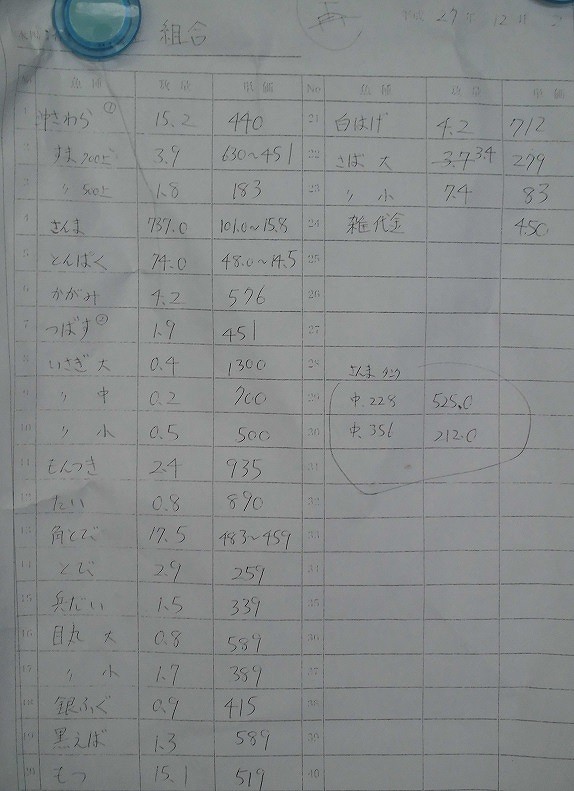 組合
27年 12月 2
No 魚種 数量 単価
1 沖さわら ① 15.2 440
2 すま 700上 3.9 630~451
3 〃 500上 1.8 183
4 さんま 737.0 101.0~15.8
5 とんぱく 74.0 48.0~14.5
6 かがみ 4.2 576
7 つばす ② 1.9 451
8 いさぎ 大 0.4 1300
9 〃 中 0.2 700
10 〃 小 0.5 500
11 もんつき 2.4 935
12 たい 0.8 890
13 角とび 17.5 483~459
14 とび 2.9 259
15 兵だい 1.5 339
16 目丸 大 0.8 589
17 〃 小 1.7 389
18 銀ふぐ 0.9 415
19 黒えば 1.3 589
20 もつ 15.1 519
No 魚種 数量 単価
21 白はげ 4.2 712
22 さば 大 3.4 279
23 〃 小 7.4 83
24 雑代金 450
25
26
27
28 さんま タンク
29 中.228 525.0
30 中.356 212.0
31
32
33
34
35
36
37
38
39
40